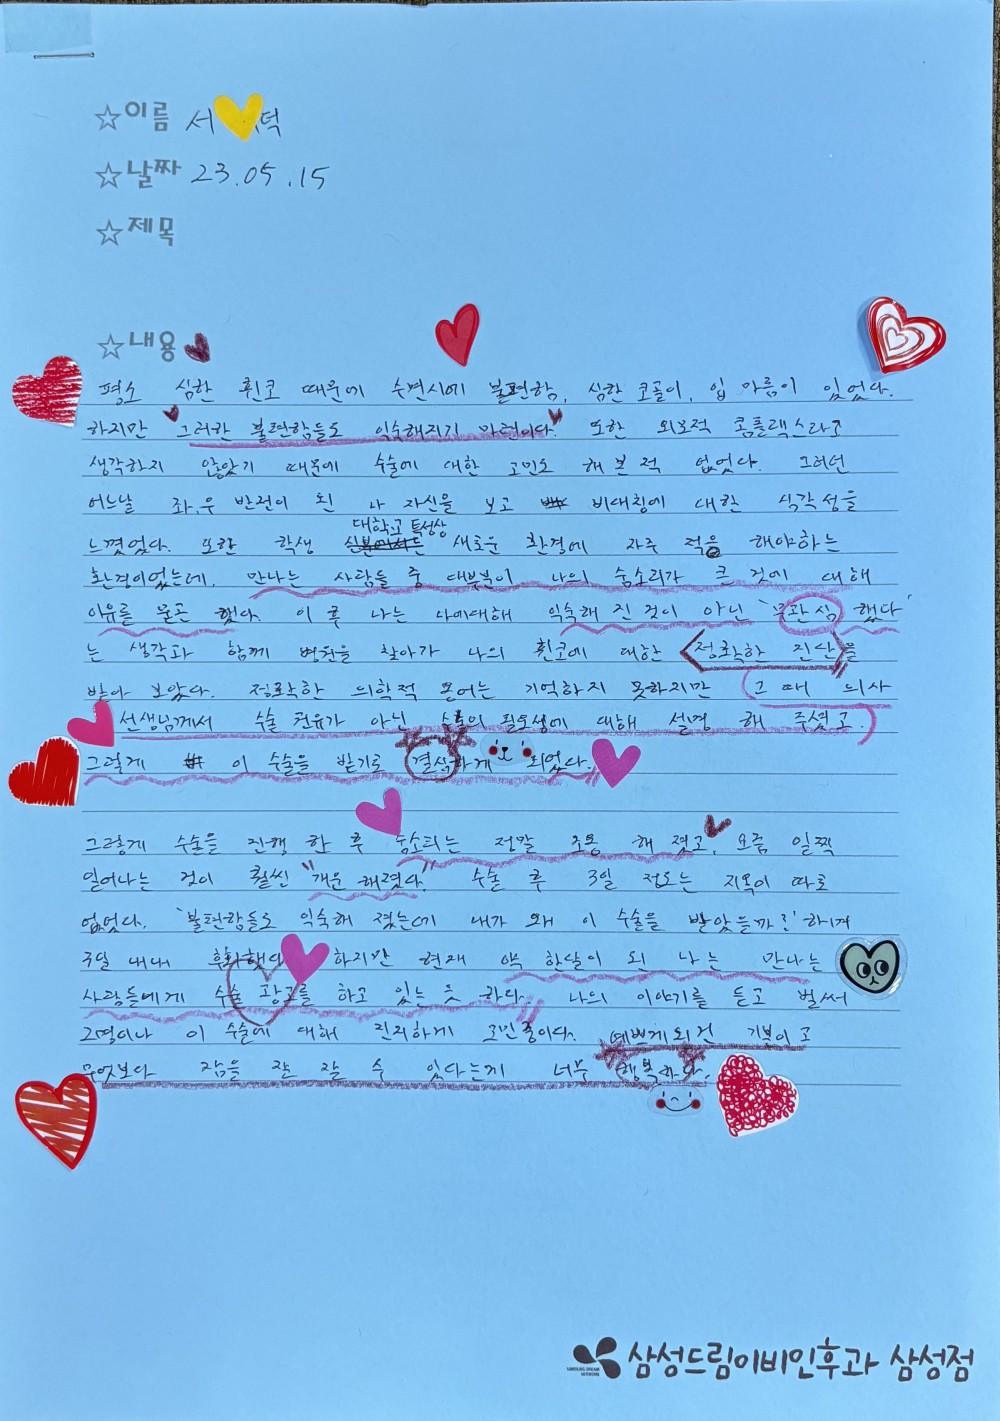 ☆이름 서 덕
☆날짜 23.05.15
☆제목
☆내용
평소 심한 휜코 때문에 수면시에 불편함, 심한 코골이, 입 마름이 있었다.
하지만 "그러한 불편함들도 익숙해지기 마련이다." 또한 외모적 콤플렉스라고
생각하지 않았기 때문에 수술에 대한 고민도 해 본 적 없었다. 그러던
어느날 좌,우 반전이 된 나 자신을 보고 비대칭에 대한 심각성을
느꼈었다. 또한 학생 대학교 특성상 새로운 환경에 자주 적응 해야하는
환경이었는데, 만나는 사람들 중 대부분이 나의 숨소리가 큰 것에 대해
이유를 묻곤 했다. 이 후 나는 나에대해 익숙해 진 것이 아닌 '무관심 했다'
는 생각과 함께 병원을 찾아가 나의 휜코에 대한 <정확한 진단>을
받아 보았다. 정확한 의학적 용어는 기억하지 못하지만 그 때 의사
선생님께서 수술 권유가 아닌 수술의 필요성에 대해 설명 해 주셨고.
그렇게 이 수술을 받기로 결심하게 되었다.
그렇게 수술을 진행 한 후 숨소리는 정말 조용 해 졌고, 요즘 일찍
일어나는 것이 훨씬 "개운 해졌다." 수술 후 3일 정도는 지옥이 따로
없었다. '불편함들도 익숙해 졌는데 내가 왜 이 수술을 받았을까?' 하며
3일 내내 후회했다 하지만 현재 약 한달이 된 나는 만나는
사람들에게 수술 광고를 하고 있는 듯 하다. 나의 이야기를 듣고 벌써
2명이나 이 수술에 대해 진지하게 고민중이다. 예쁘게된건 기본이고
무엇보다 잠을 잘 잘 수 있다는게 너무 행복하다.
삼성드림이비인후과 삼성점